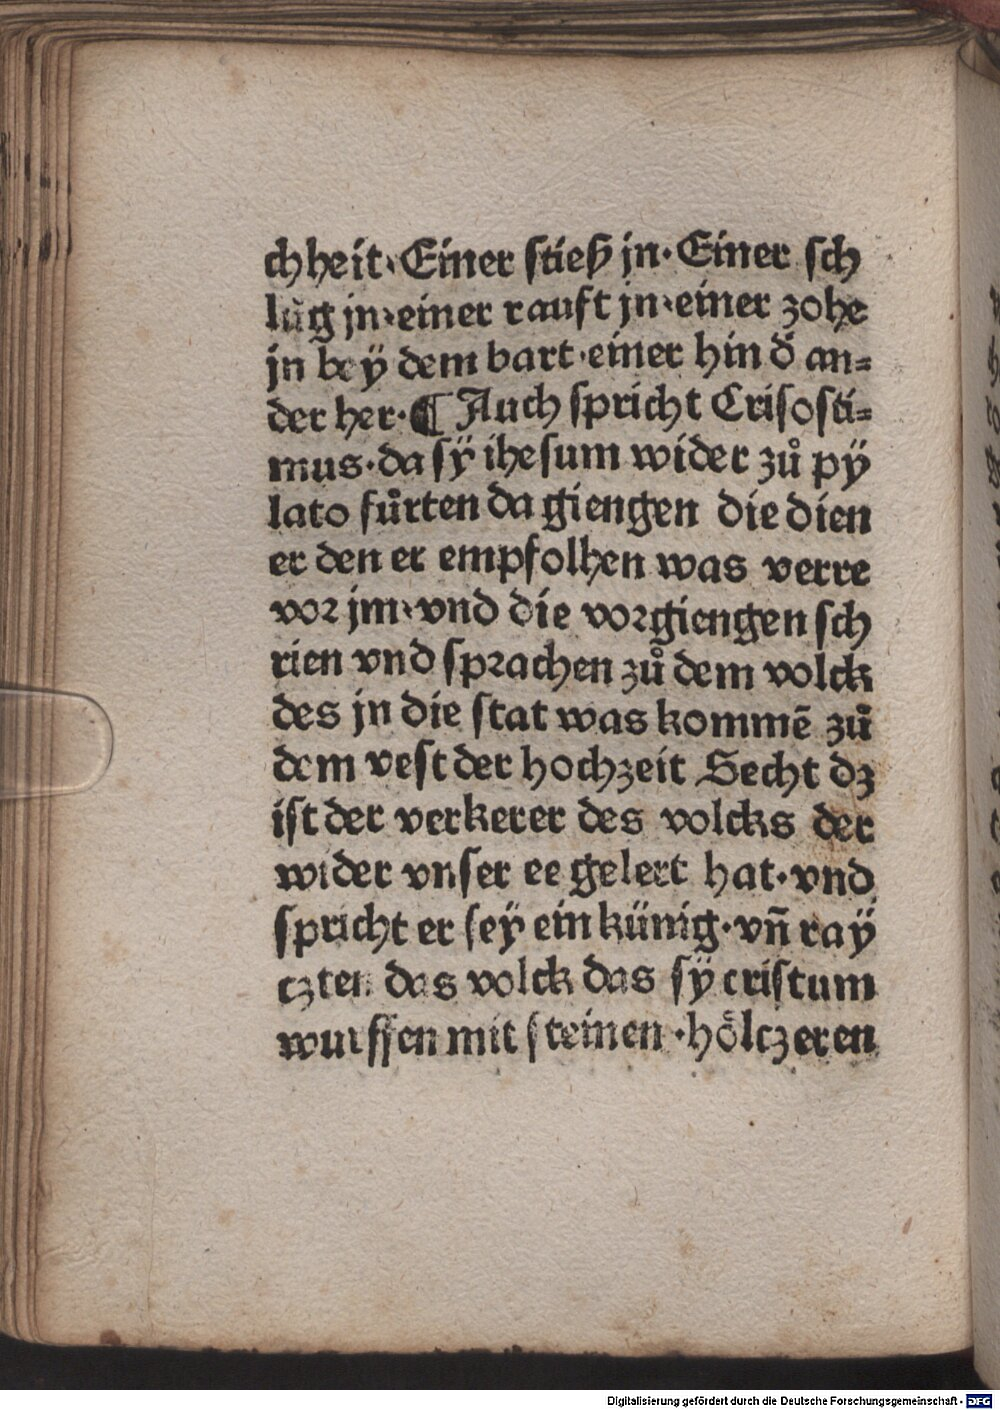 chheit· Einer stieß jn· Einer sch
lůg jn· einer rauft jn· einer zohe
jn bey̎ dem bart· einer hin đ an⸗
der her· ¶ Auch spricht Crisosti⸗
mus· da sy̎ ihesum wider zů py̎
lato fůrten da giengen die dien
er den er empfolhen was verre
vor jm· vnd die vorgiengen sch
rien vnd sprachen zů dem volck
des jn die stat was kommē zů
dem vest der hochzeit Secht dz
ist der verkerer des volcks der
wider vnser ee gelert hat· vnd
spricht er sey̎ ein künig· vñ ray̎
czten das volck das sy̎ cristum
wurffen mit steinen · hölczeren
Digitalisierung gefördert durch die Deutsche Forschungsgemeinschaft - DFG